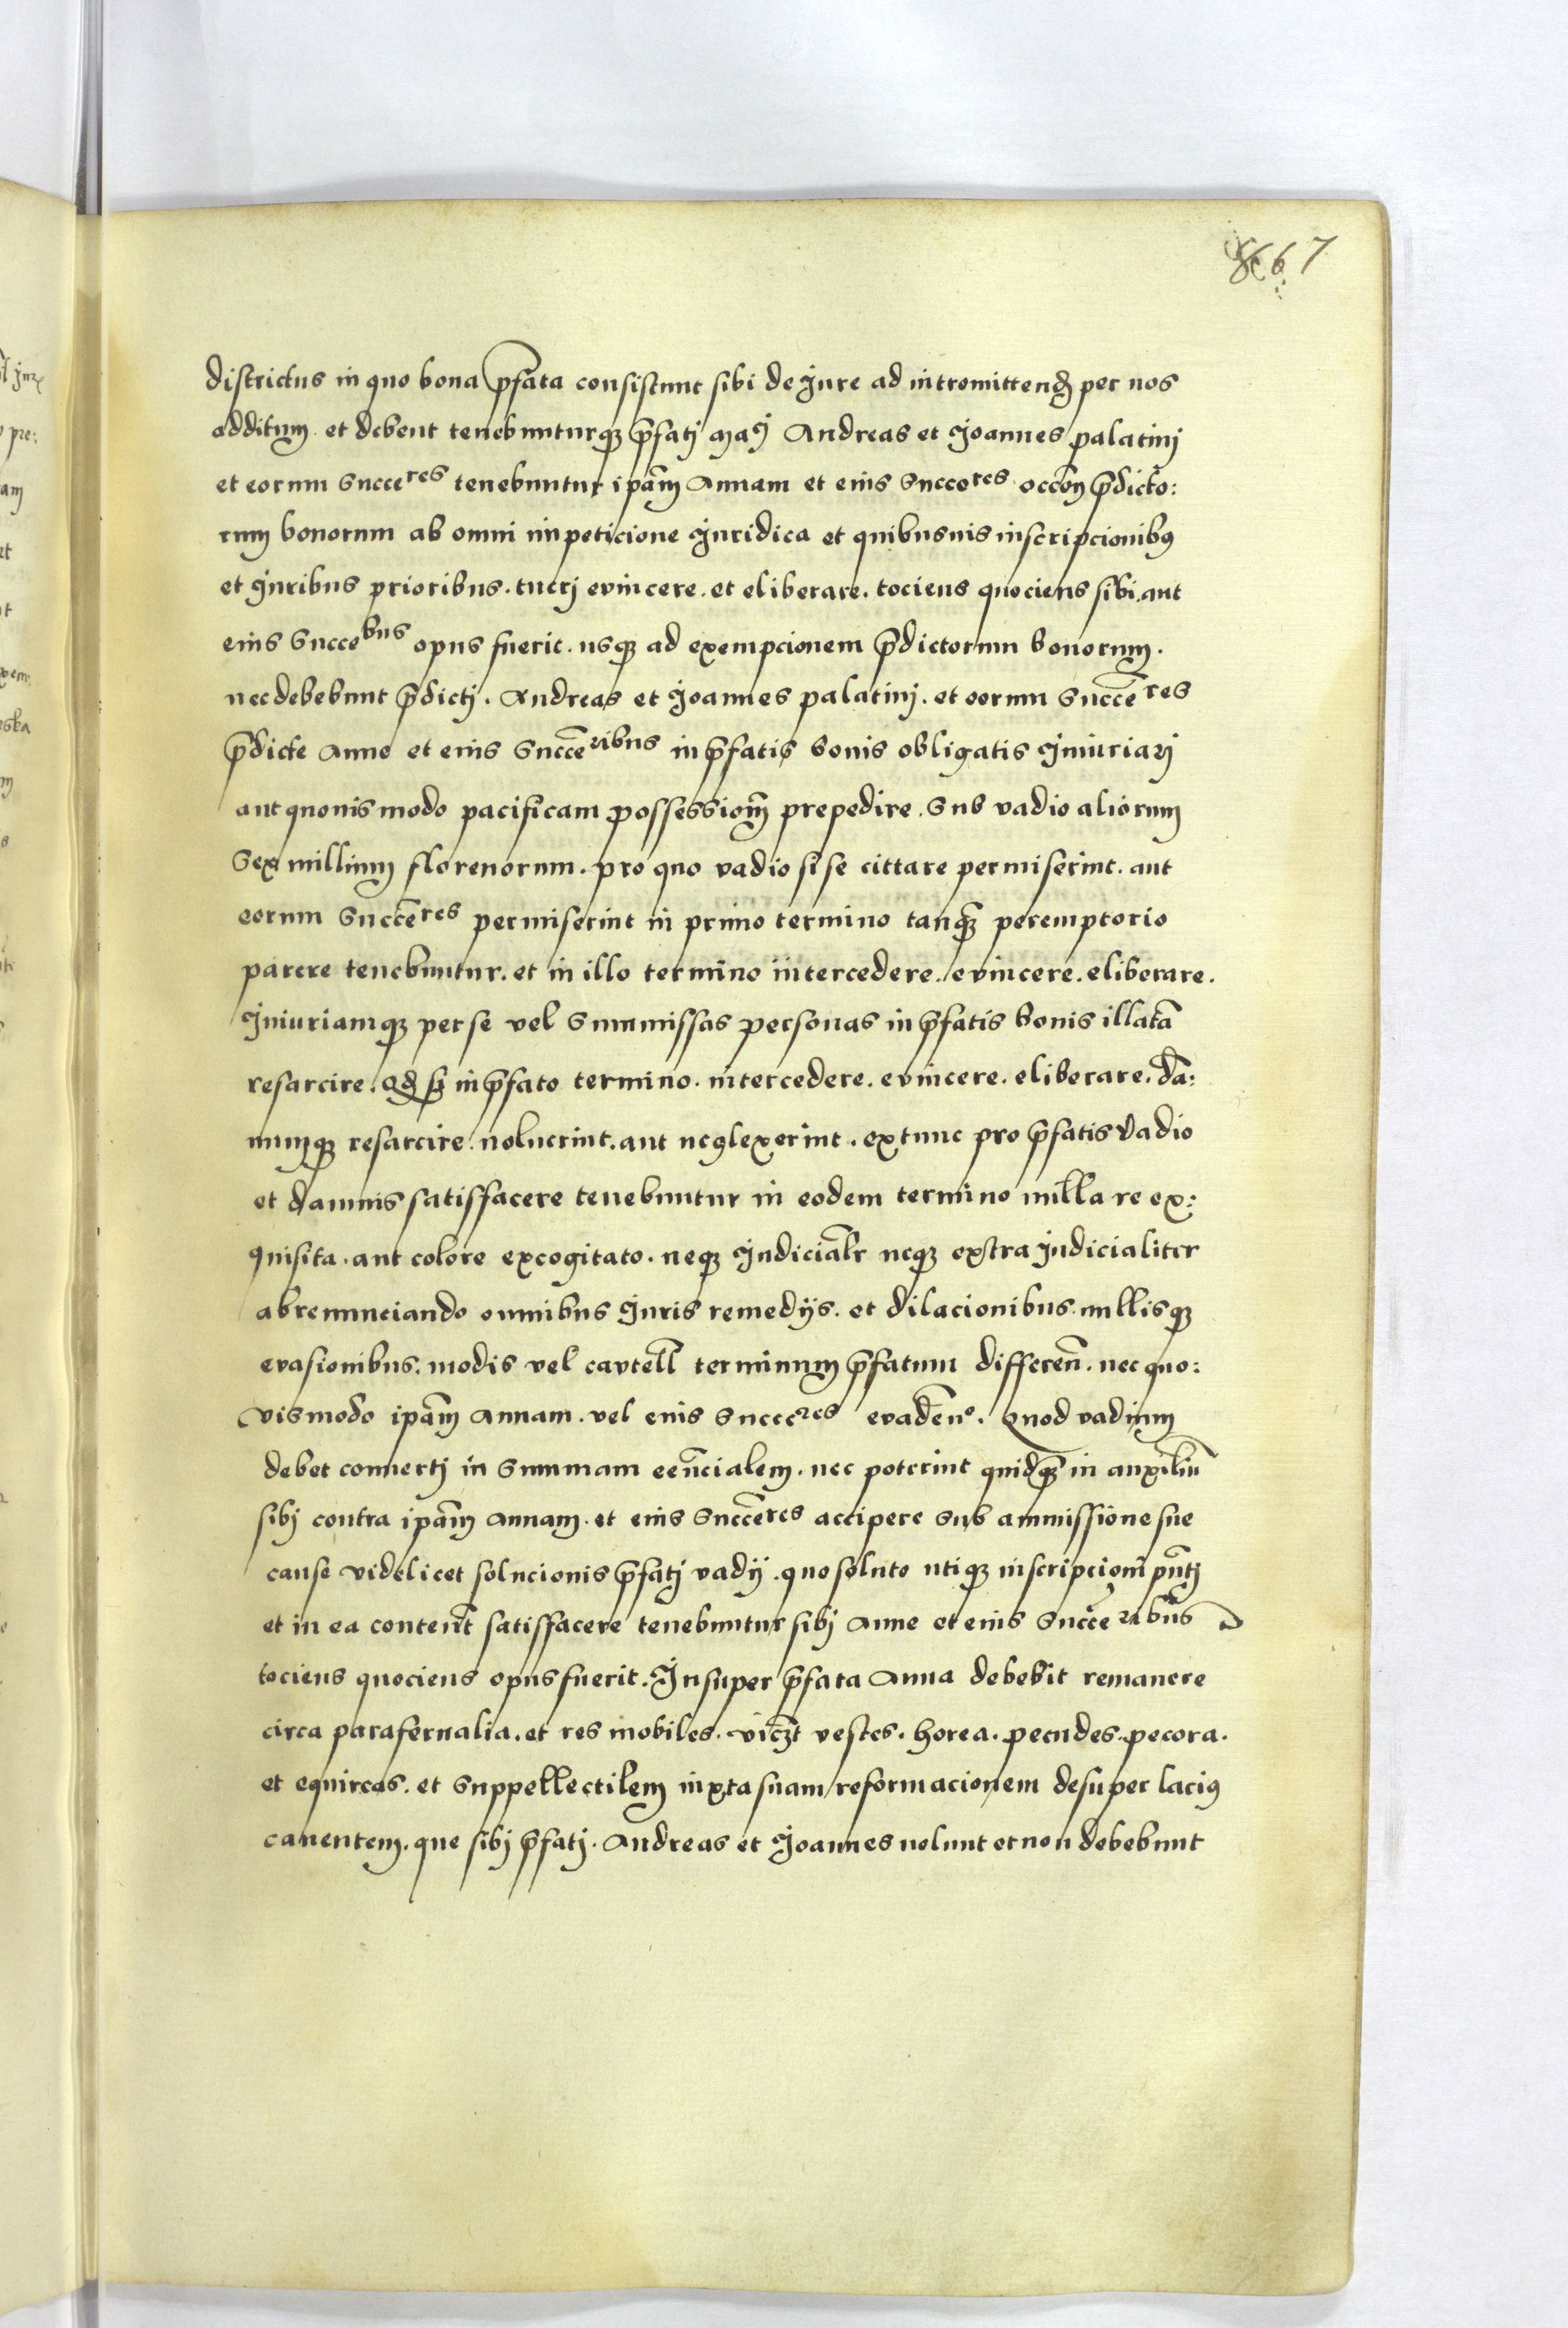 67
districtus in quo bona p̄fata consistunt sibi de jure ad intromittend per nos
additum. et debent tenebunturqꝫ p̄fatj Andreas et Joannes palatinj
et eorum Succeres tenebuntur ip̄am Annam et eius Succeres occ̄oṇ p̄dicto:
rum bonorum ab omni impeticione Juridica et quibusuis inscripcionibꝰ
et Juribus prioribus. tuerj evincere. et eliberare. tociens quociens sibi. aut
eius Succebus opus fuerit. usqꝫ ad exempcionem p̄dictorum bonorum.
nec debebunt p̄dictj. Andreas et Joannes palatinj. et eorum Succēres
p̄dicte Anne et eius Succēribus in p̄fatis bonis obligatis Jniuriarj
aut quouismodo pacificam possessiōm prepedire. Sub vadio aliorum
Sex millium florenorum. pro quo vadio si se cittare permiserint. aut
eorum Succēres permiserint in primo termino tanqꝫ̄ peremptorio
parere tenebuntur. et in illo termino intercedere. evincere. eliberare.
Jniuriamqꝫ per se vel Summissas personas in p̄fatis bonis illatā
resarcire. Qd si in p̄fato termino. intercedere. evincere. eliberare. dā:
numqꝫ resarcire noluerint. aut neglexerint. extunc pro p̄fatis Vadio
et damnis satisfacere tenebuntur in eodem termino nulla re ex:
quisita. aut colore excogitato. neqꝫ Judicial̄r neqꝫ extra Judicialiter
abrenunciando omnibus Juris remedijs. et dilacionibus. nullisqꝫ
evasionibus. modis vel cavtell̄ terminum p̄fatum differen̄. nec quo:
vismodo ip̄am Annam. vel eius Succeres evaden̄o. Quod vadium
debet conuertj in Summam eēncialem. nec poterint quidqꝫ̄ in auxiliū
sibj contra ip̄am Annam. et eius Succēres accipere Sub ammissione sue
cause videlicet solucionis p̄fatj vadij. quo soluto utiqꝫ inscripcioni pn̄tj
et in ea content̄ satisfacere tenebuntur sibj Anne et eius Succēribus
tociens quociens opus fuerit. Jnsuper p̄fata Anna debebit remanere
circa parafernalia. et res mobiles. vicꝫt vestes. horea. pecudes. pecora.
et equireas. et Suppellectilem iuxta suam reformacionem desuper laciꝰ
cauentem. que sibj p̄fatj. Andreas et Joannes uolunt et non debebunt